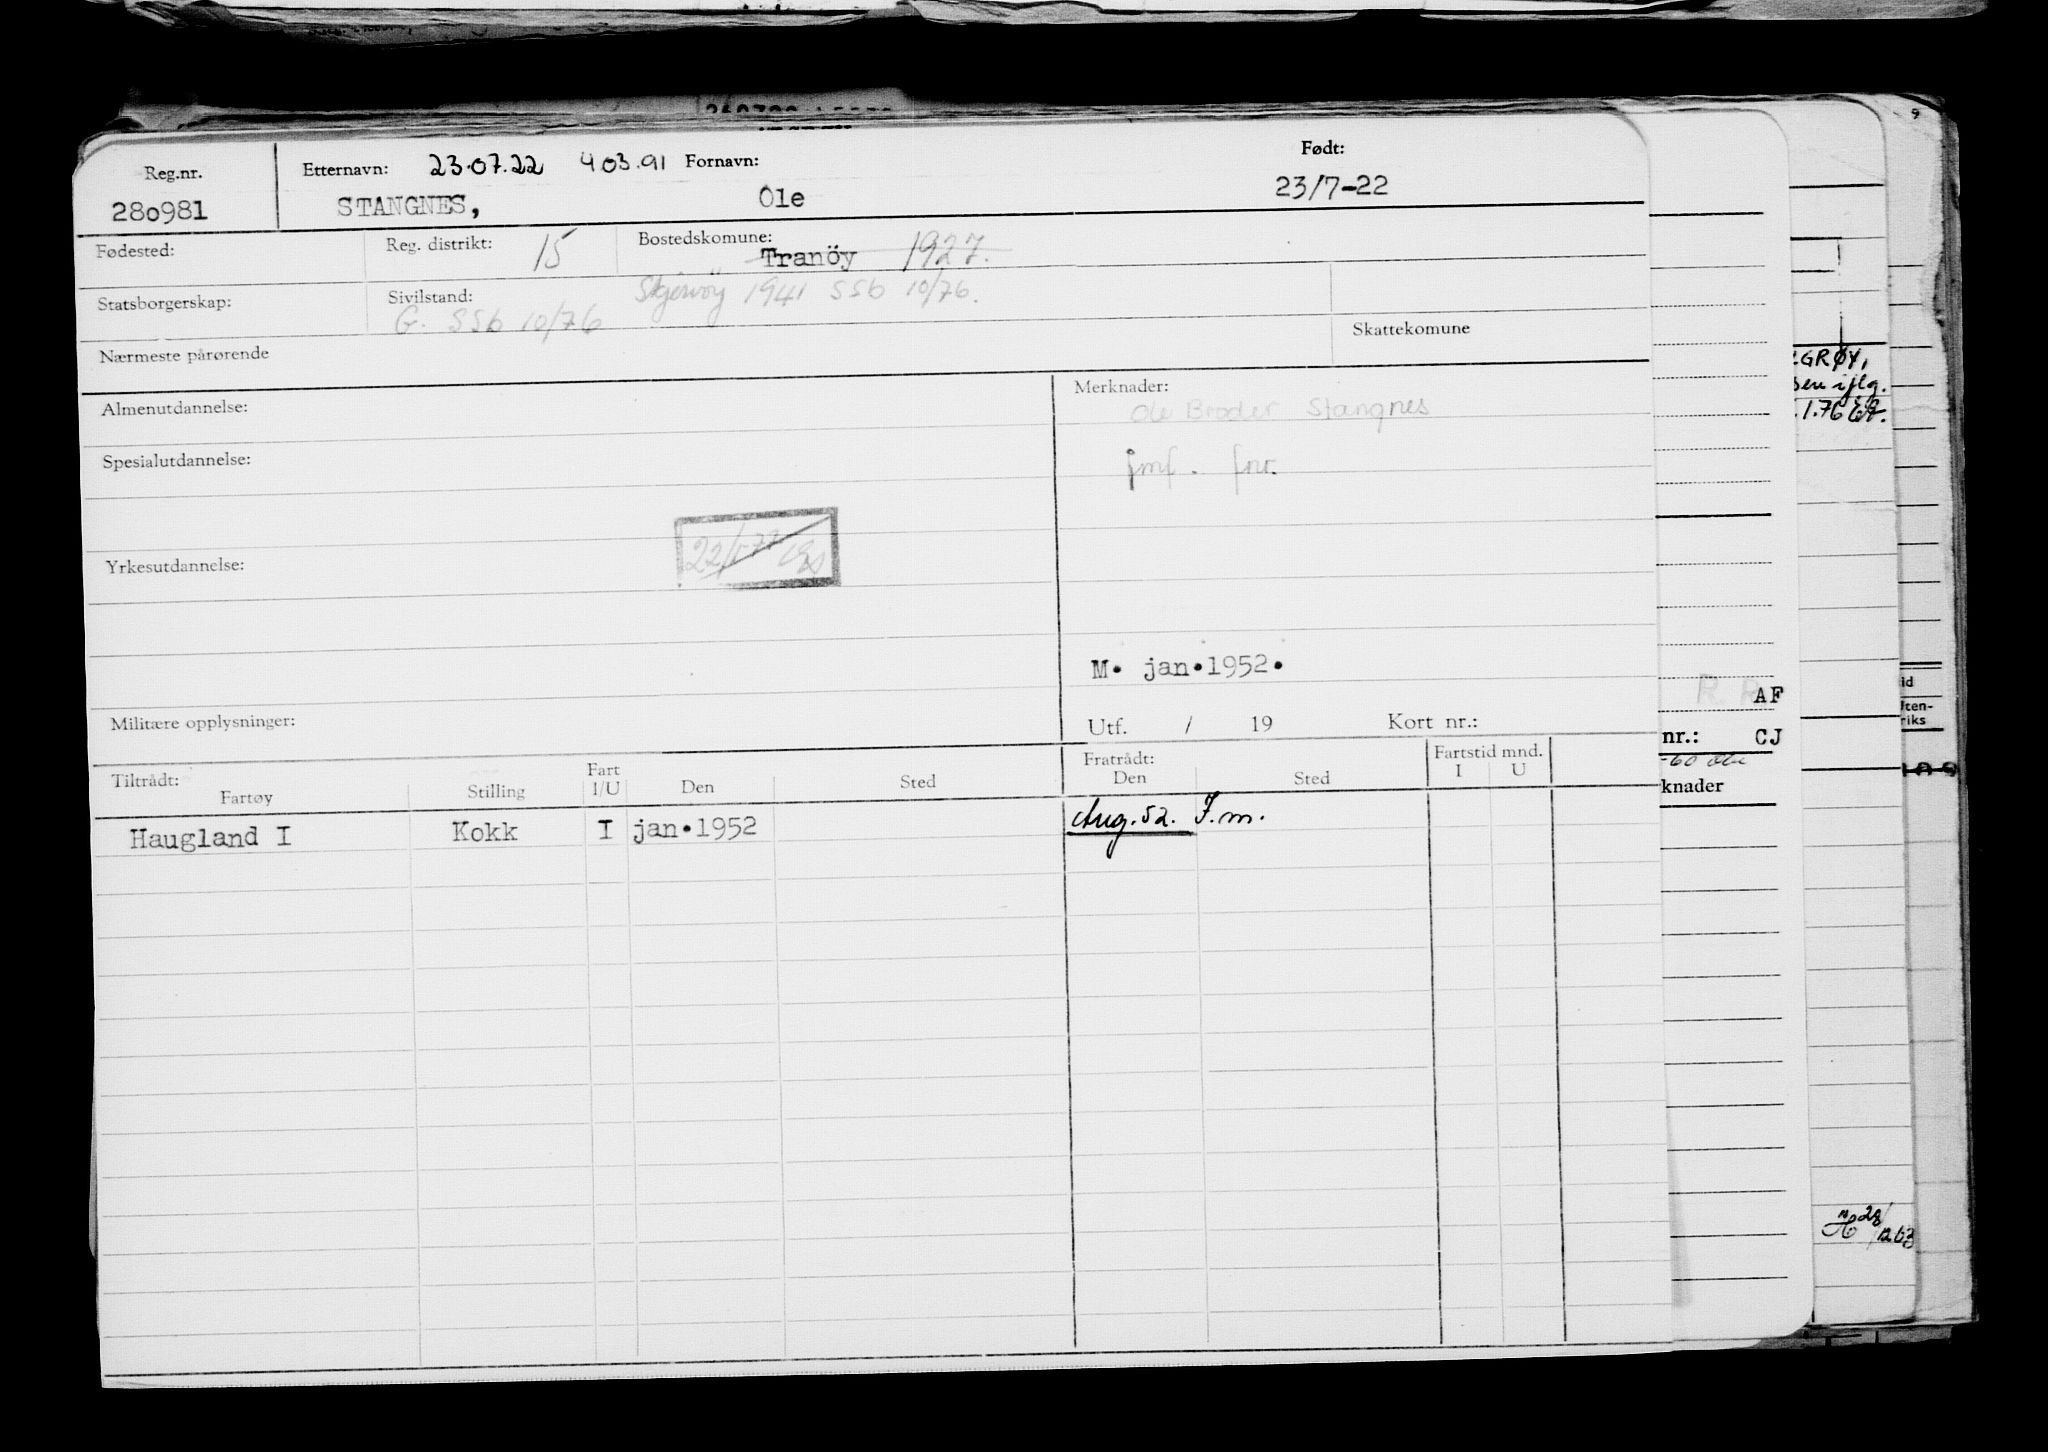 Reg.nr. Etternavn: 23.07.22 403.91 Fornavn: Født:
280981 STANGNES, Ole 23/7-22
Fødested: Reg. distrikt: 15 Bostedskomune: Tranöy 1927.
Statsborgerskap: Sivilstand: G. SSb 10/76 Skjervöy 1941 SSb 10/76.
Skattekomune
Nærmeste pårørende
Almenutdannelse: Merknader:
Ole Broder Stangnes
Spesialutdannelse: jmf. fnr.
Yrkesutdannelse:
M. jan.1952.
Militære opplysninger: Utf. / 19 Kort nr.:
Tiltrådt: Fratrådt: Fartstid mnd.
Fartøy Stilling Fart I/U Den Sted Den Sted I U
Haugland I Kokk I jan.1952 Aug.52. F.m.
RGRØY,
sen iflg.
1.76
AF
nr.: CJ
knader
id
ften-
riks